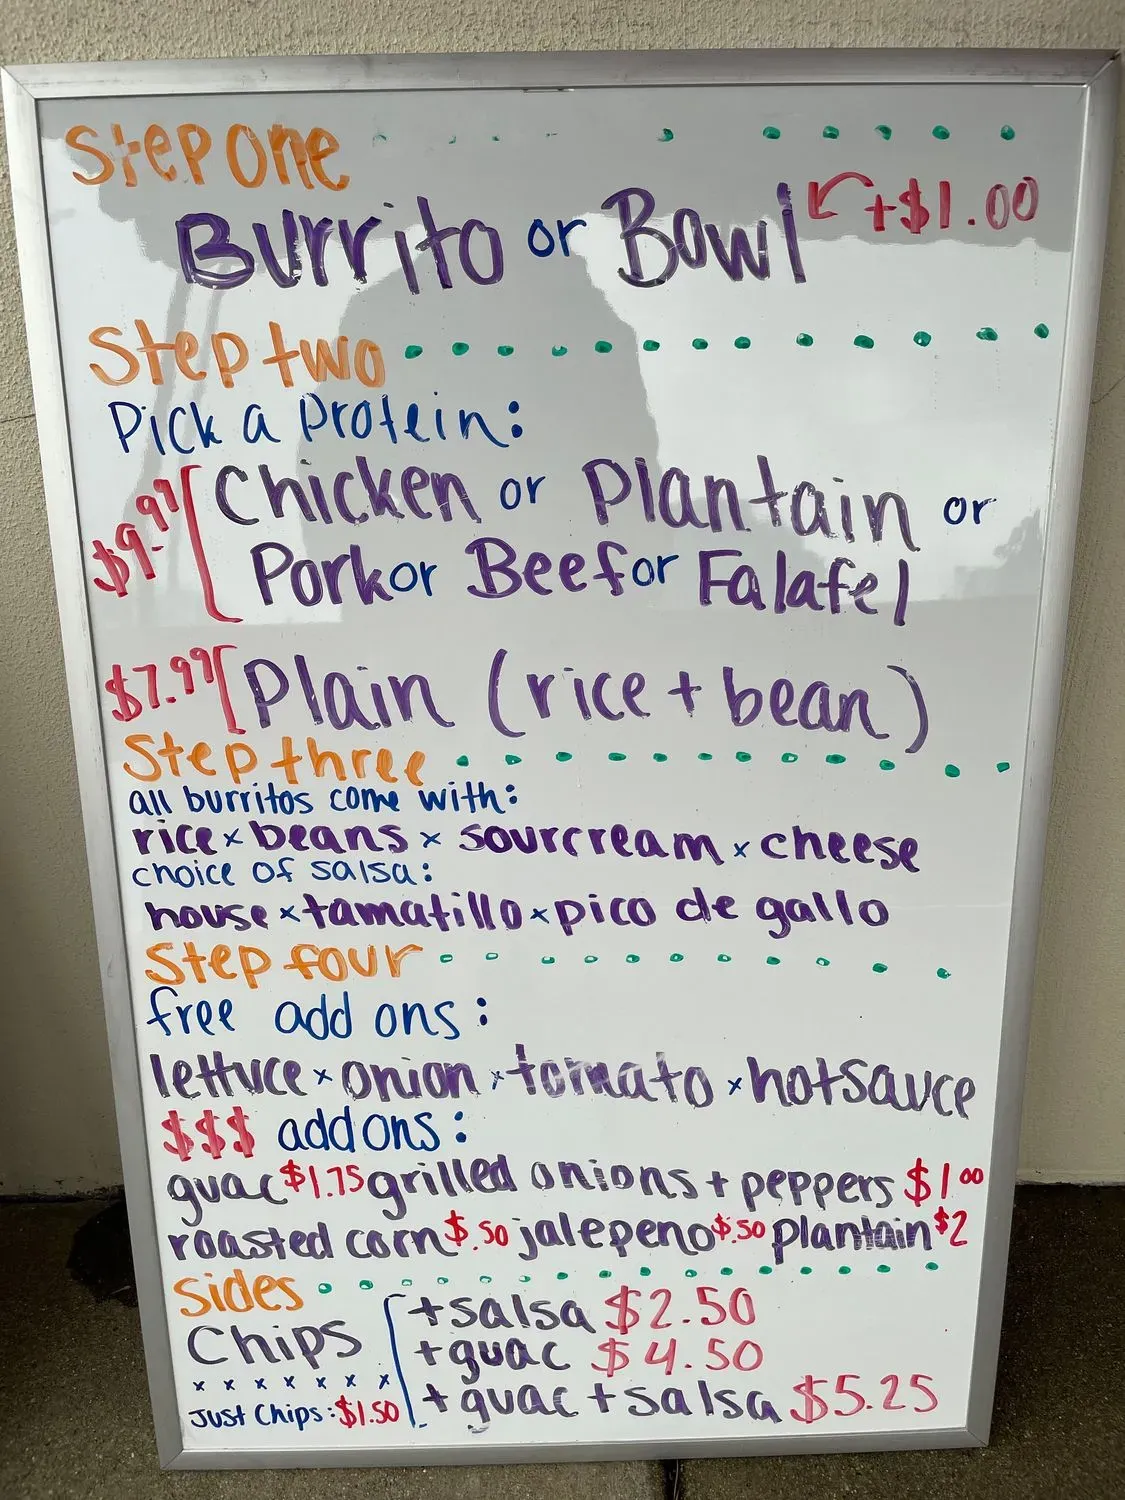 Step One
Burrito or Bowl +$1.00
Step two
Pick a Protein:
$9.99 Chicken or Plantain or
Pork or Beef or Falafel
$7.99 Plain (rice + bean)
Step three
all burritos come with:
rice x beans x sourcream x cheese
choice of salsa:
house x tamatillo x pico de gallo
Step four
free add ons:
lettuce x onion x tomato x hotsauce
$$$ add ons:
guac $1.75 grilled onions + peppers $1.00
roasted corn $.50 jalepeno $.50 plantain $2
Sides
Chips +salsa $2.50
+guac $4.50
x x x x x x x
Just Chips: $1.50 + guac + salsa $5.25